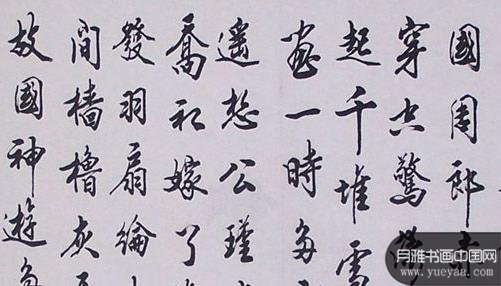 國周郎赤
穿空驚濤
起千堆雪
畫一時多
遙想公瑾
喬初嫁了
發羽扇綸
間檣櫓灰
故國神遊多
月雅书画中国网
www.yueyaa.com